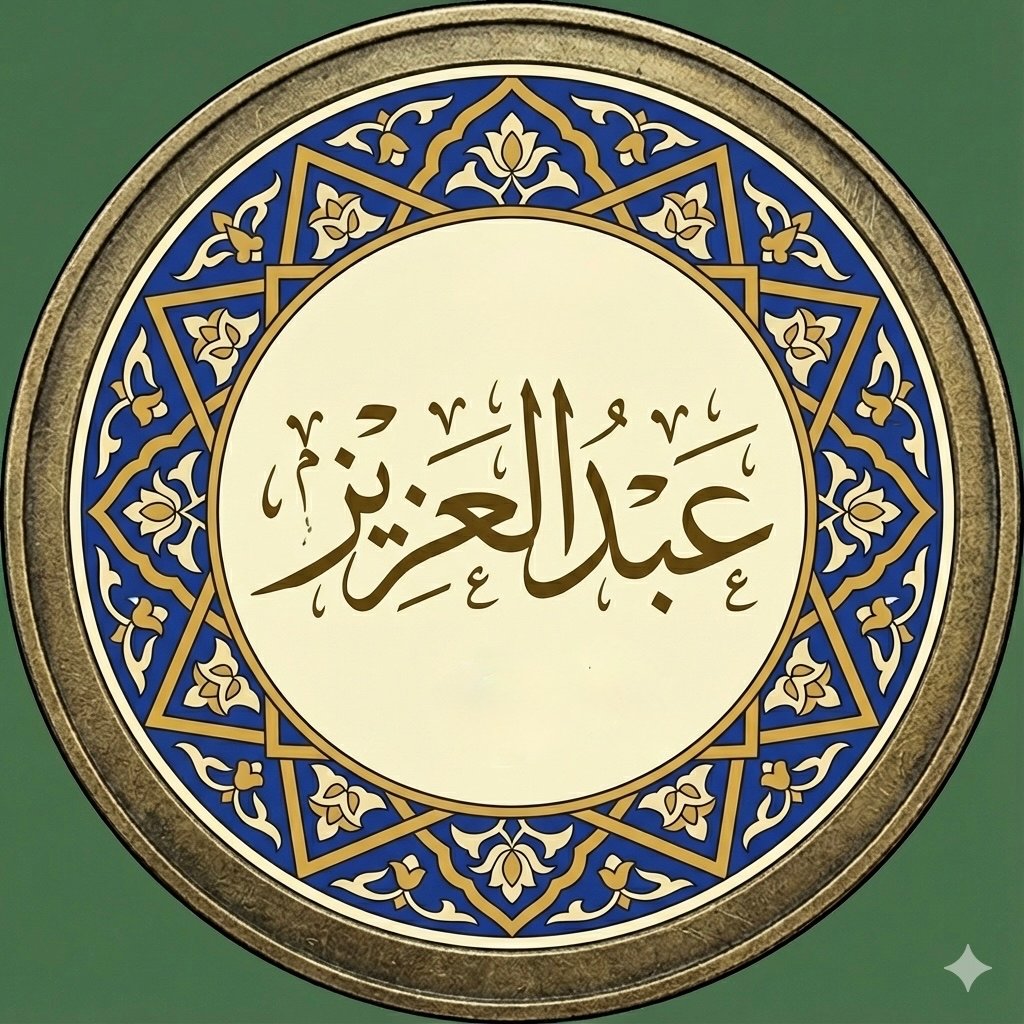 عَبْدُ الْعَزِيزِ